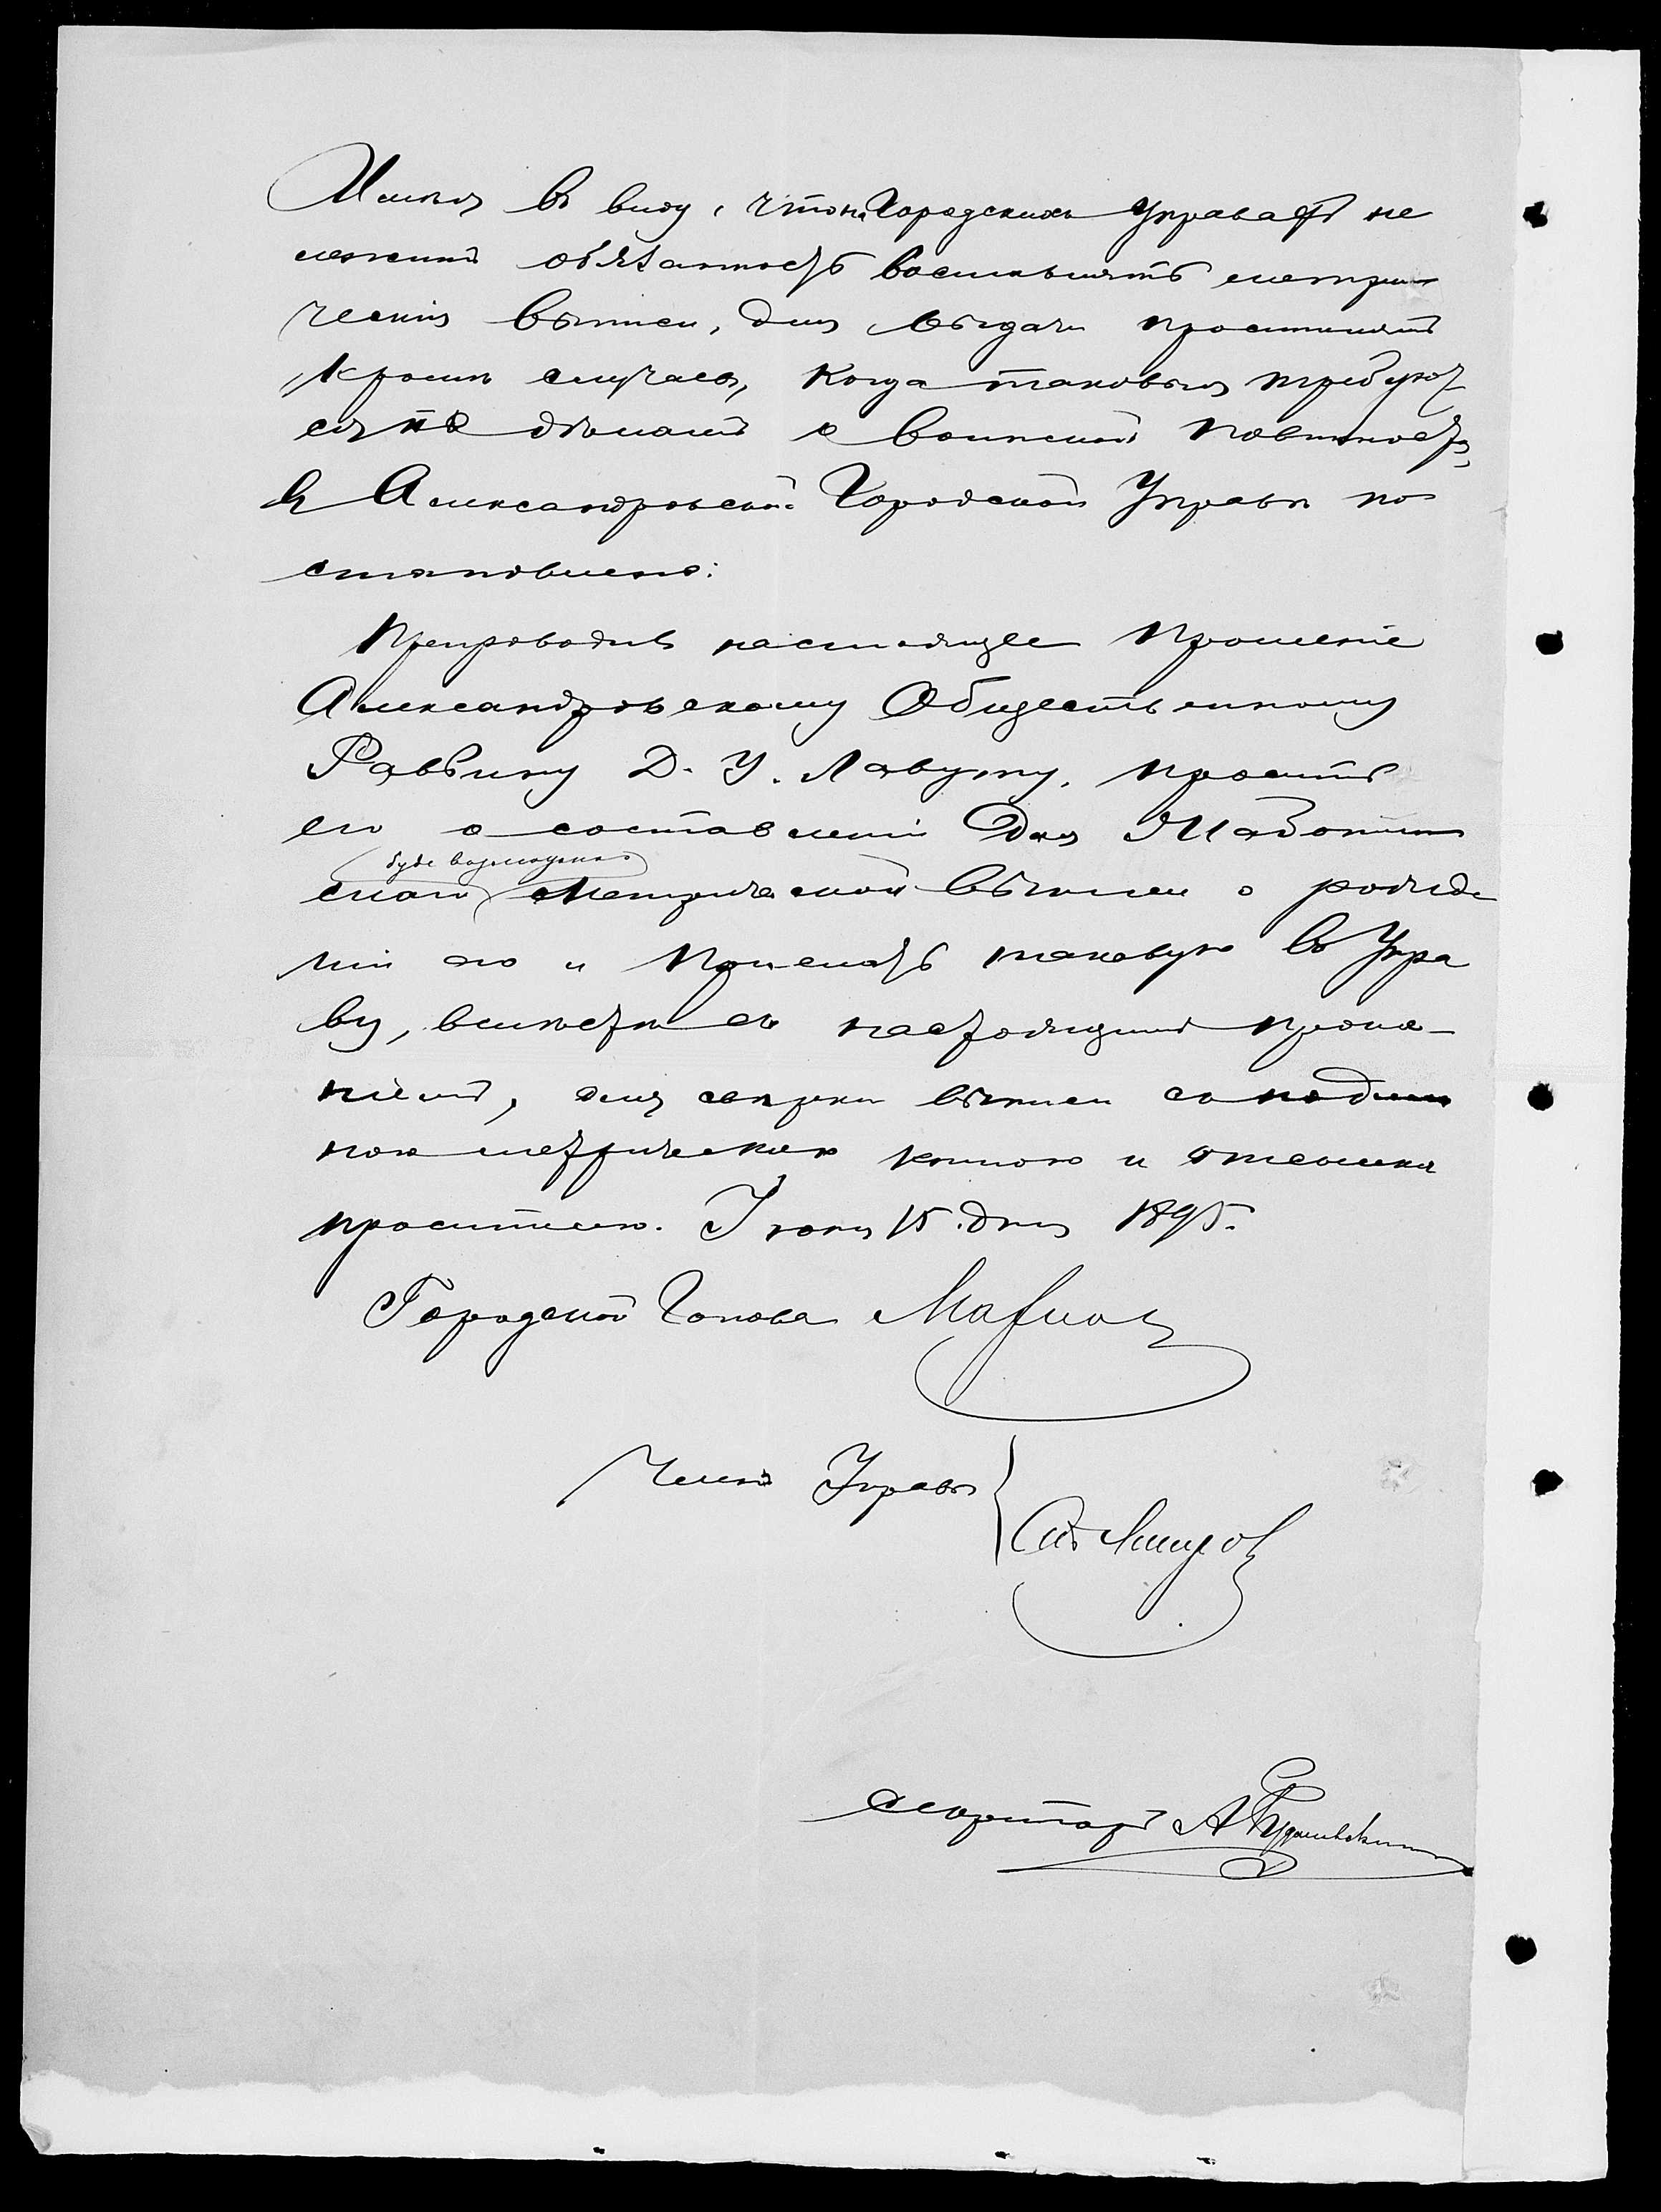 Имѣя въ виду, что на Городскихъ Управахъ не
лежитъ обязанность составлять метри
ческія выписи, для выдачи просителямъ
кромѣ случаевъ, когда таковыя требуют
ся по дѣламъ о воинской повинности,
въ Александровской Городской Управѣ по
становлено:
Препроводивъ настоящее прошеніе
Александровскому Общественному
Раввину Д. У. Лавуту, просить
его о составленіи для
буде возможно
скаго метрической выписи о рожде
ніи его и прислать таковую въ Упра
ву, вмѣстѣ съ настоящимъ проше-
ніемъ, для свѣрки выписи съ подлин
ною метрическою книгою и отсылки
просителю. Іюня 15 дня 1895.
Городской Голова
Членъ Управы
Секретарь А